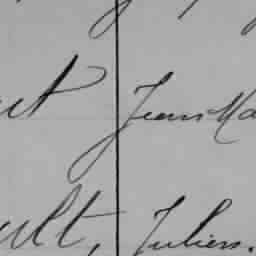 ut Jean Ma
ult, Julien.